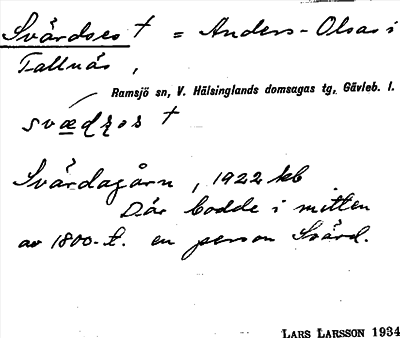 Svärdses † = Anders-Olsas i
Tallnäs,
Ramsjö sn, V. Hälsinglands domsagas tg, Gävleb. l.
Svärdagårn, 1922 kb
Där bodde i mitten
av 1800-t. en person Svärd.
LARS LARSSON 1934